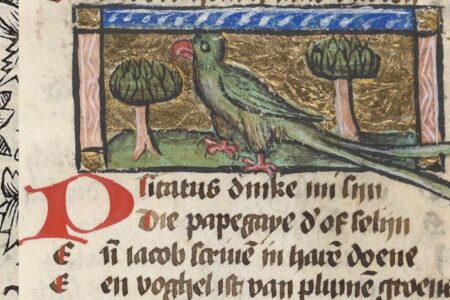 Psitatus dinke mi sijn
Die papegaye d'of solijn
Eñ iacob scriuē in harē doene
Een voghel ist van plumē groene